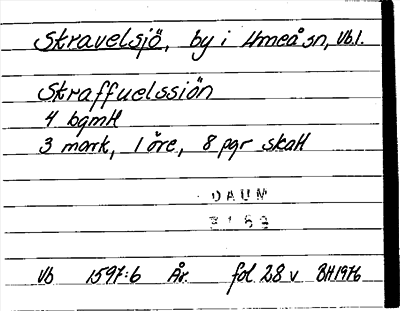 Stravelsjö, by i Umeå sn, Vb.l.
Skraffuelssiön
4 bgmtl
3 mark, 1 öre, 8 pgr skatt
DAUM
Vb 1597:6 År. fol 28 v BH1976